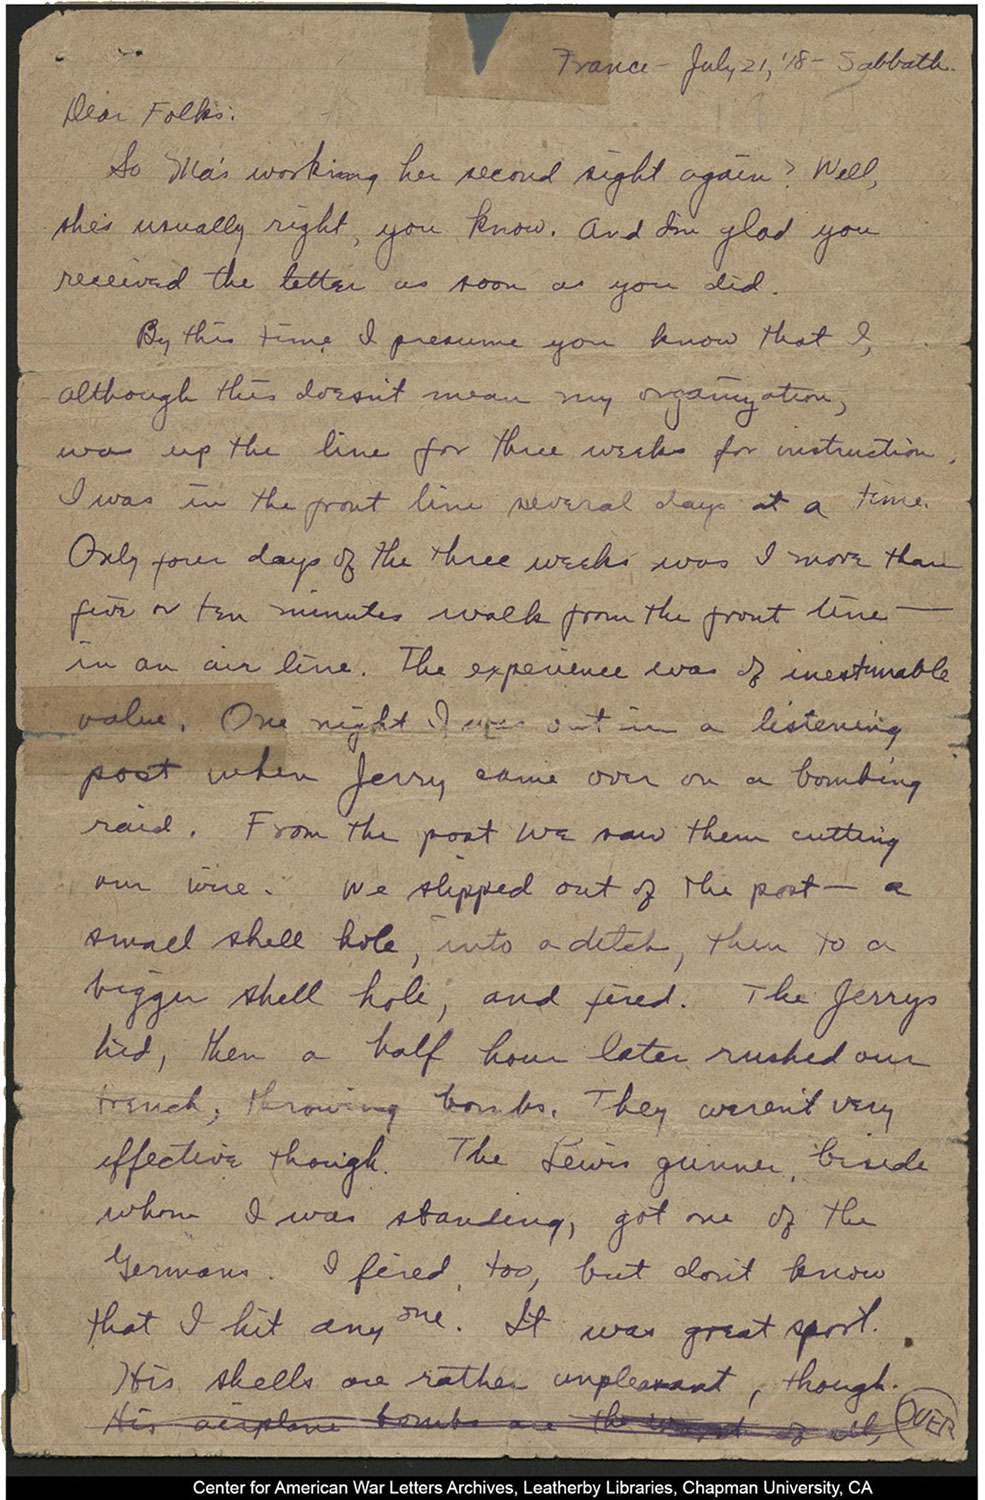 France - July 21, '18 - Sabbath.
Dear Folks:
So Ma's working her second sight again? Well,
she's usually right, you know. And I'm glad you
received the letter as soon as you did.
By this time I presume you know that I,
although this doesn't mean my organization,
was up the line for three weeks for instruction.
I was in the front line several days at a time.
Only four days of the three weeks was I more than
five or ten minutes walk from the front line —
in an air line. The experience was of inestimable
value. One night I was out in a listening
post when Jerry came over on a bombing
raid. From the post we saw them cutting
our wire. We slipped out of the post — a
small shell hole, into a ditch, then to a
bigger shell hole, and fired. The Jerrys
hid, then a half hour later rushed our
trench, throwing bombs. They weren't very
effective though. The Lewis gunner, beside
whom I was standing, got one of the
Germans. I fired, too, but don't know
that I hit any one. It was great sport.
His shells are rather unpleasant, though.
His airplane bombs are the worst of all,
OVER
Center for American War Letters Archives, Leatherby Libraries, Chapman University, CA